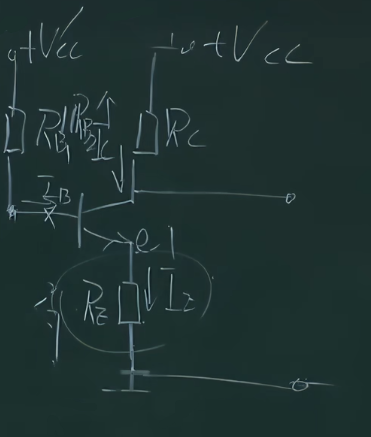 +Vcc
+Vcc
RB1 // RB2
Ic
Rc
IB
e
RE
IE